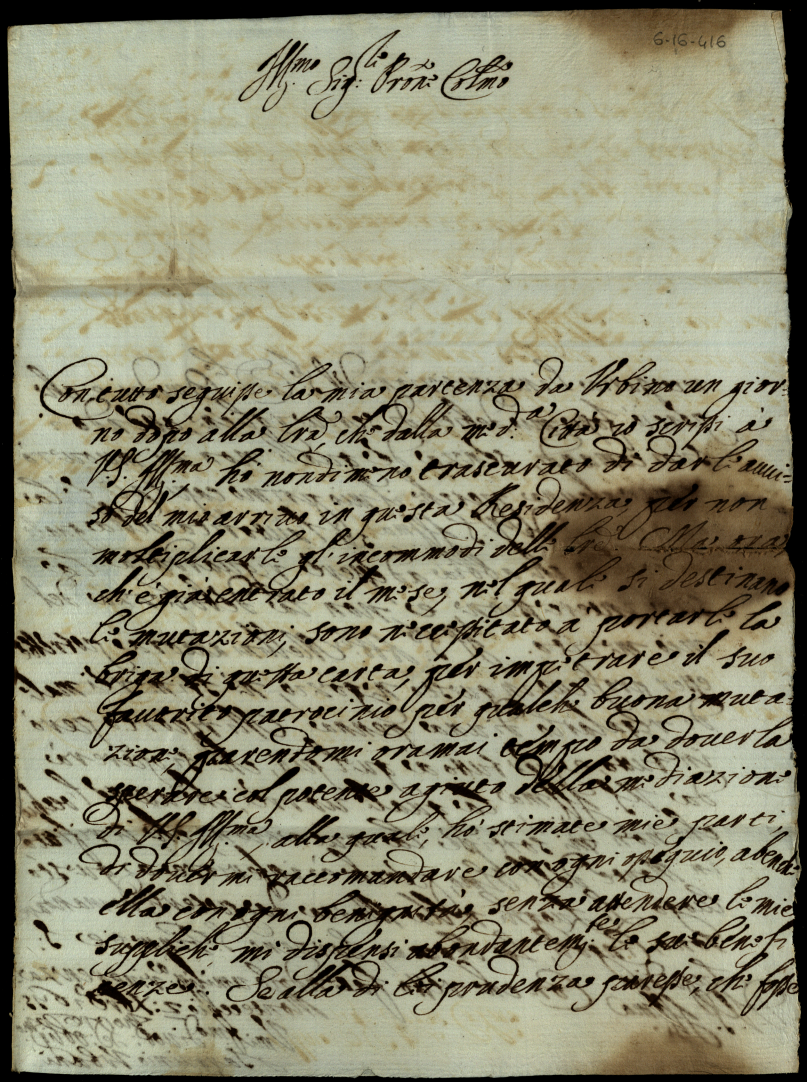 6-16-416
Ill.mo Sig.re Pron.e Col.mo
Con tutto seguisse la mia partenza da Urbino un gior-
no dopo alla lra, che dalla med.a Città io scrissi à
VS. Ill.ma, hò nondimeno trascurato di darle avvi-
so del mio arrivo in questa Residenza, per non
moltiplicarle gl'incommodi delle lre. Ma ora,
ch'è già entrato il mese, nel quale si destinano
le mutazioni, sono necessitato a portarle la
briga di questa carta, per impetrare il suo
favorito patrocinio per qualche buona muta-
zione, parendomi oramai tempo da doverla
sperare col potente agiuto della mediazione
di VS. Ill.ma, alla quale, hò stimate mie parti,
di dovermi raccomandare con ogni ossequio, a benche
ella con ogni benignità, senza attendere le mie
suppliche, mi dispensi abondantem.te le sue benefi
cenze. Se alla di lei prudenza paresse, che fosse